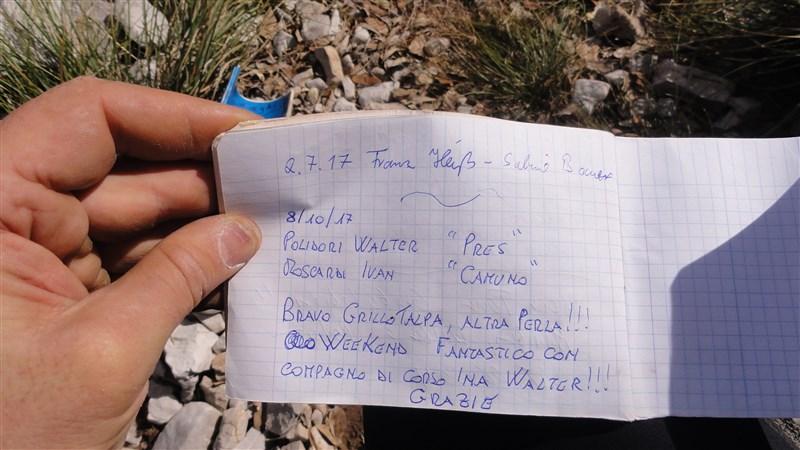 2.7.17 Franz Heiß - Sabine
8/10/17
POLIDORI WALTER "PRES"
MOSCARDI IVAN "CAMUNO"
BRAVO GRILLOTALPA, ALTRA PERLA!!!
WEEKEND FANTASTICO CON
COMPAGNO DI CORSO INA WALTER!!!
GRAZIE